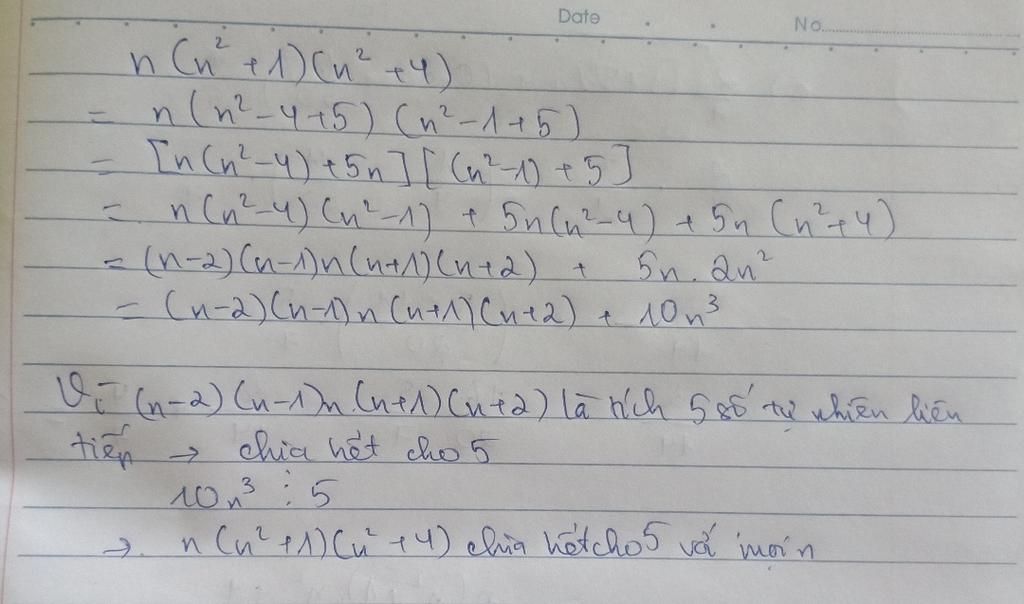 Date No.
n(n² + 1)(n² + 4)
= n(n² - 4 + 5) (n² - 1 + 5)
= [n(n² - 4) + 5n] [(n² - 1) + 5]
= n(n² - 4)(n² - 1) + 5n(n² - 4) + 5n (n² + 4)
= (n-2)(n-1)n(n+1)(n+2) + 5n. 2n²
= (n-2)(n-1)n(n+1)(n+2) + 10n³
Vì (n-2)(n-1)n.(n+1)(n+2) là tích 5 số tự nhiên liên
tiếp → chia hết cho 5
10n³ ⋮ 5
→ n(n² + 1)(n² + 4) chia hết cho 5 với mọi n